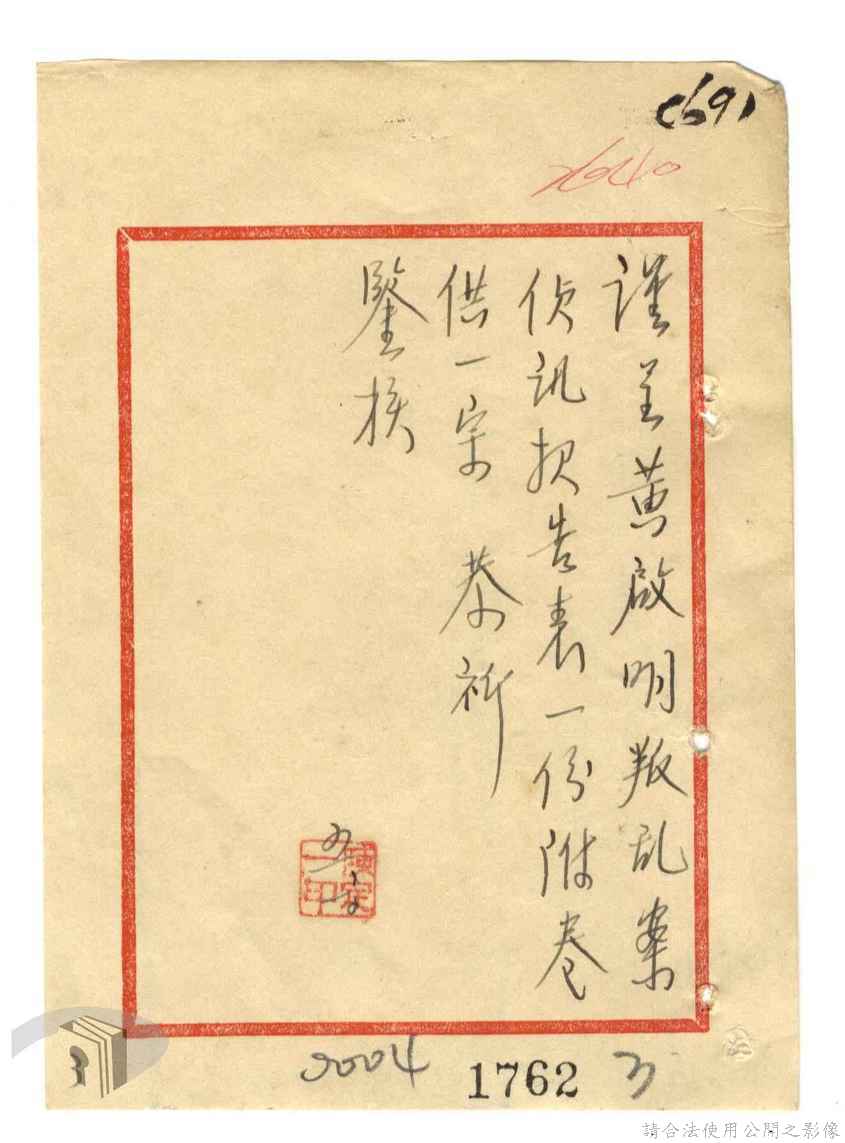 c691
2640
謹呈黃啟明叛乱案
偵訊报告表一份附卷
供一宗 恭祈
鑒核
3
0004
1762
请合法使用公開之影像